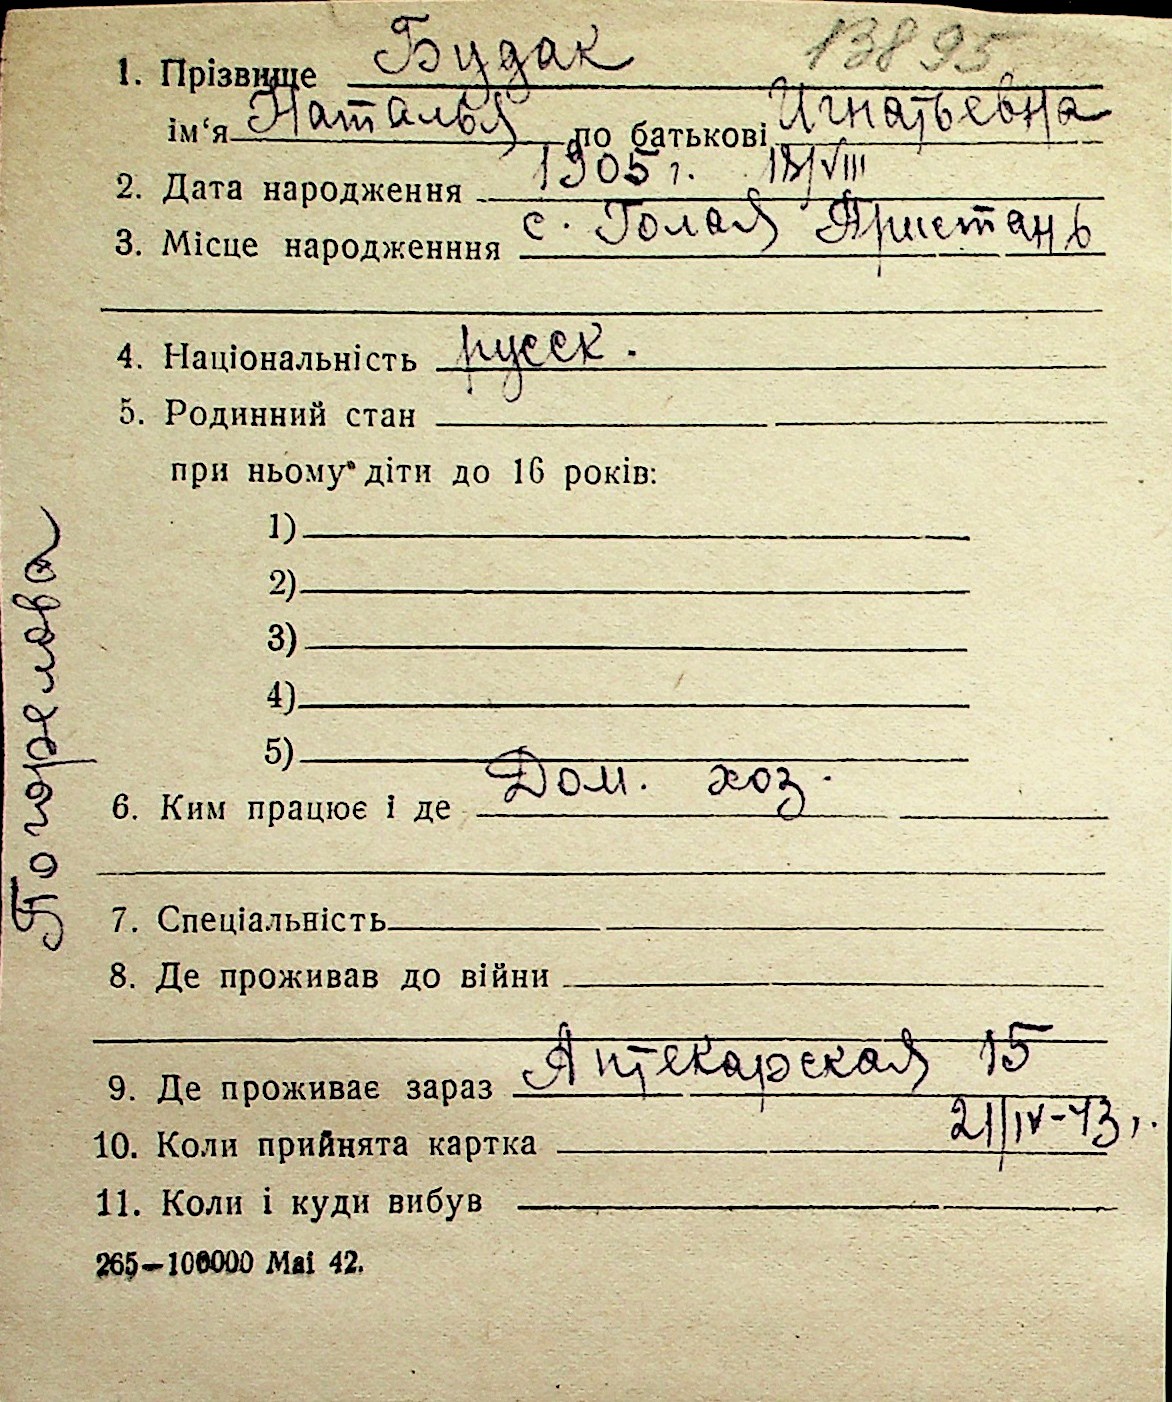 13895
1. Прізвище Будак
ім‘я Наталья по батькові Игнатьевна
2. Дата народження 1905 г. 18/VIII
3. Місце народженння с. Голая Пристань
4. Національність русск.
5. Родинний стан
при ньому діти до 16 років:
1)
2)
3)
4)
5)
6. Ким працює і де Дом. хоз.
7. Спеціальність
8. Де проживав до війни
9. Де проживає зараз Аптекарская 15
10. Коли прийнята картка 21/IV-43 г.
11. Коли і куди вибув
265—100000 Mai 42.
Погорелова